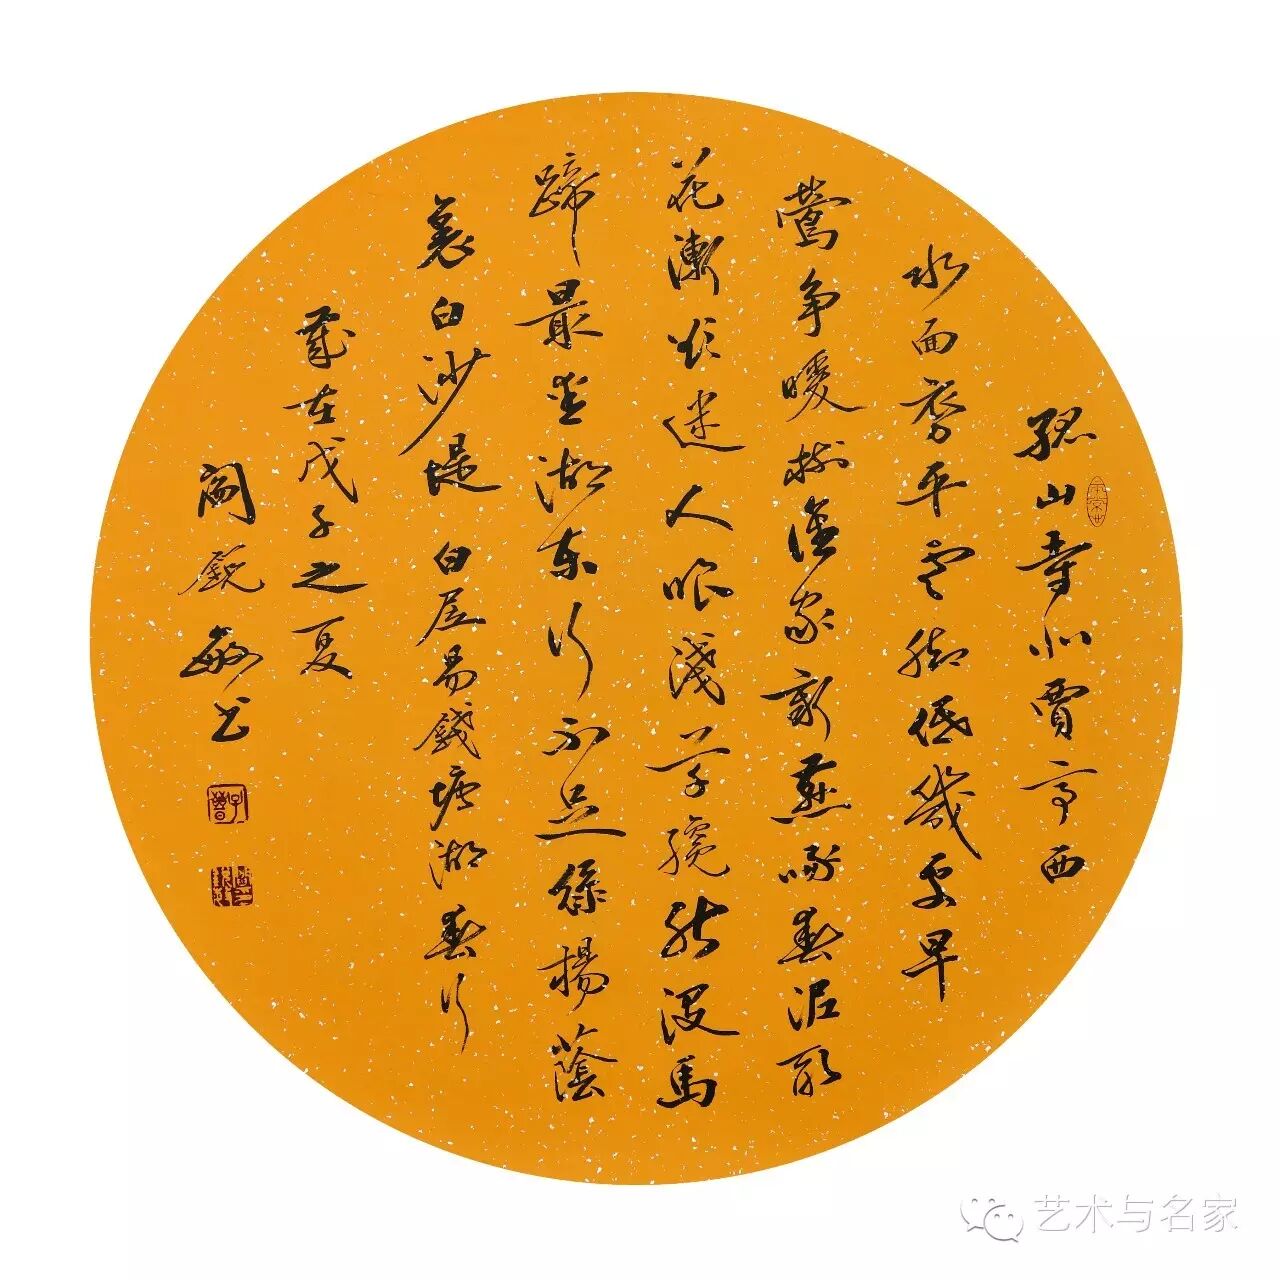 孤山寺北賈亭西
水面初平雲腳低幾處早
鶯争暖樹誰家新燕啄春泥亂
花漸欲迷人眼淺草纔能没馬
蹄最愛湖東行不足綠楊蔭
裏白沙堤 白居易錢塘湖春行
歲在戊子之夏
閻銳敏书
艺术与名家